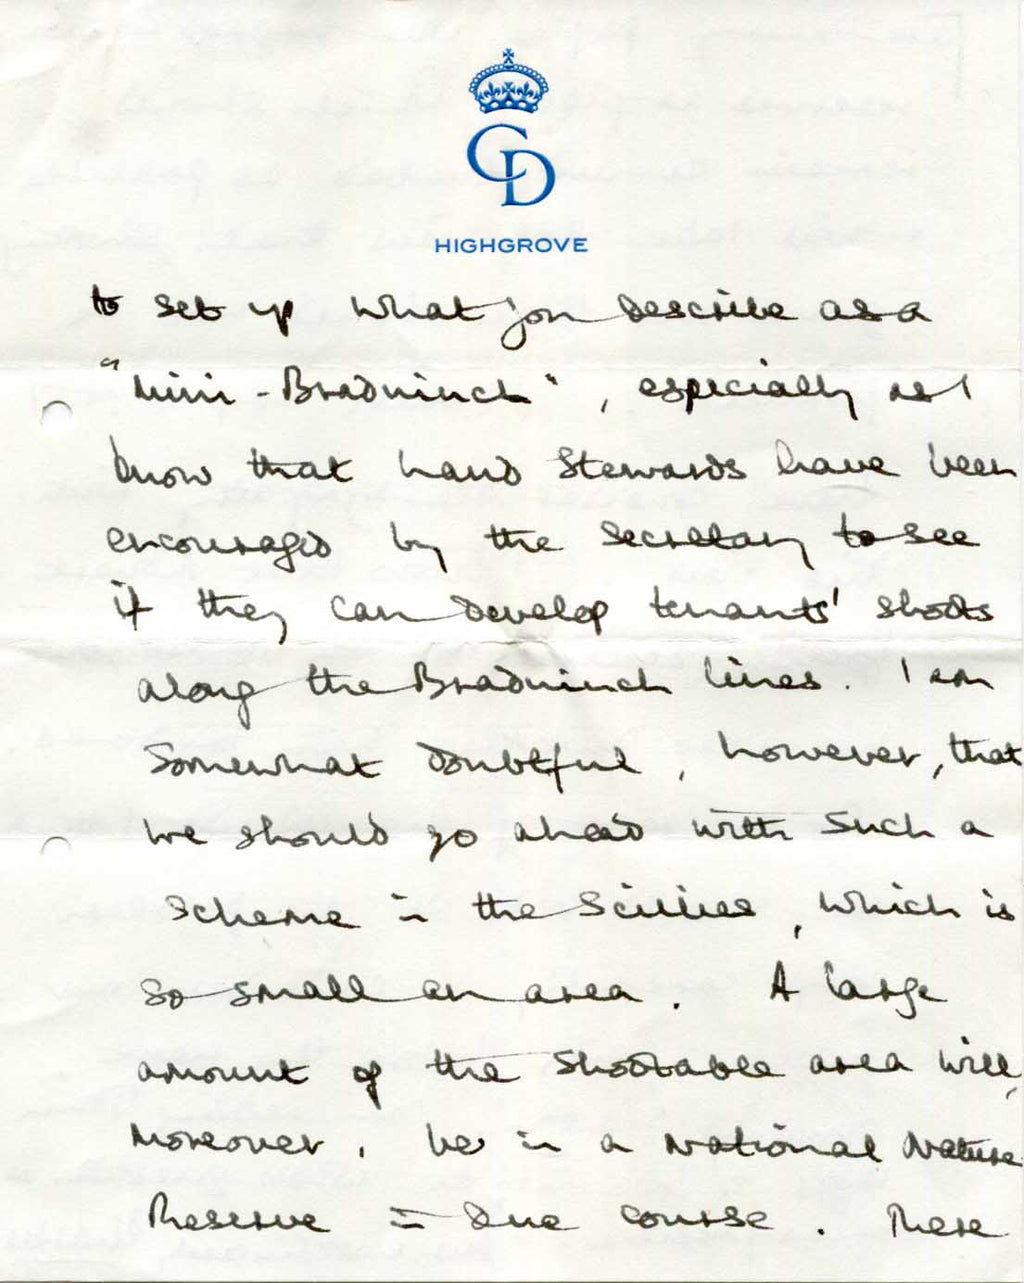 CD
HIGHGROVE
to set up what you describe as a
"mini-Bradninch", especially as I
know that Land Stewards have been
encouraged by the Secretary to see
if they can develop tenants' shoots
along the Bradninch lines. I am
somewhat doubtful, however, that
we should go ahead with such a
scheme in the Scillies, which is
so small an area. A large
amount of the shootable area will,
moreover, be in a National Nature
Reserve in due course. There